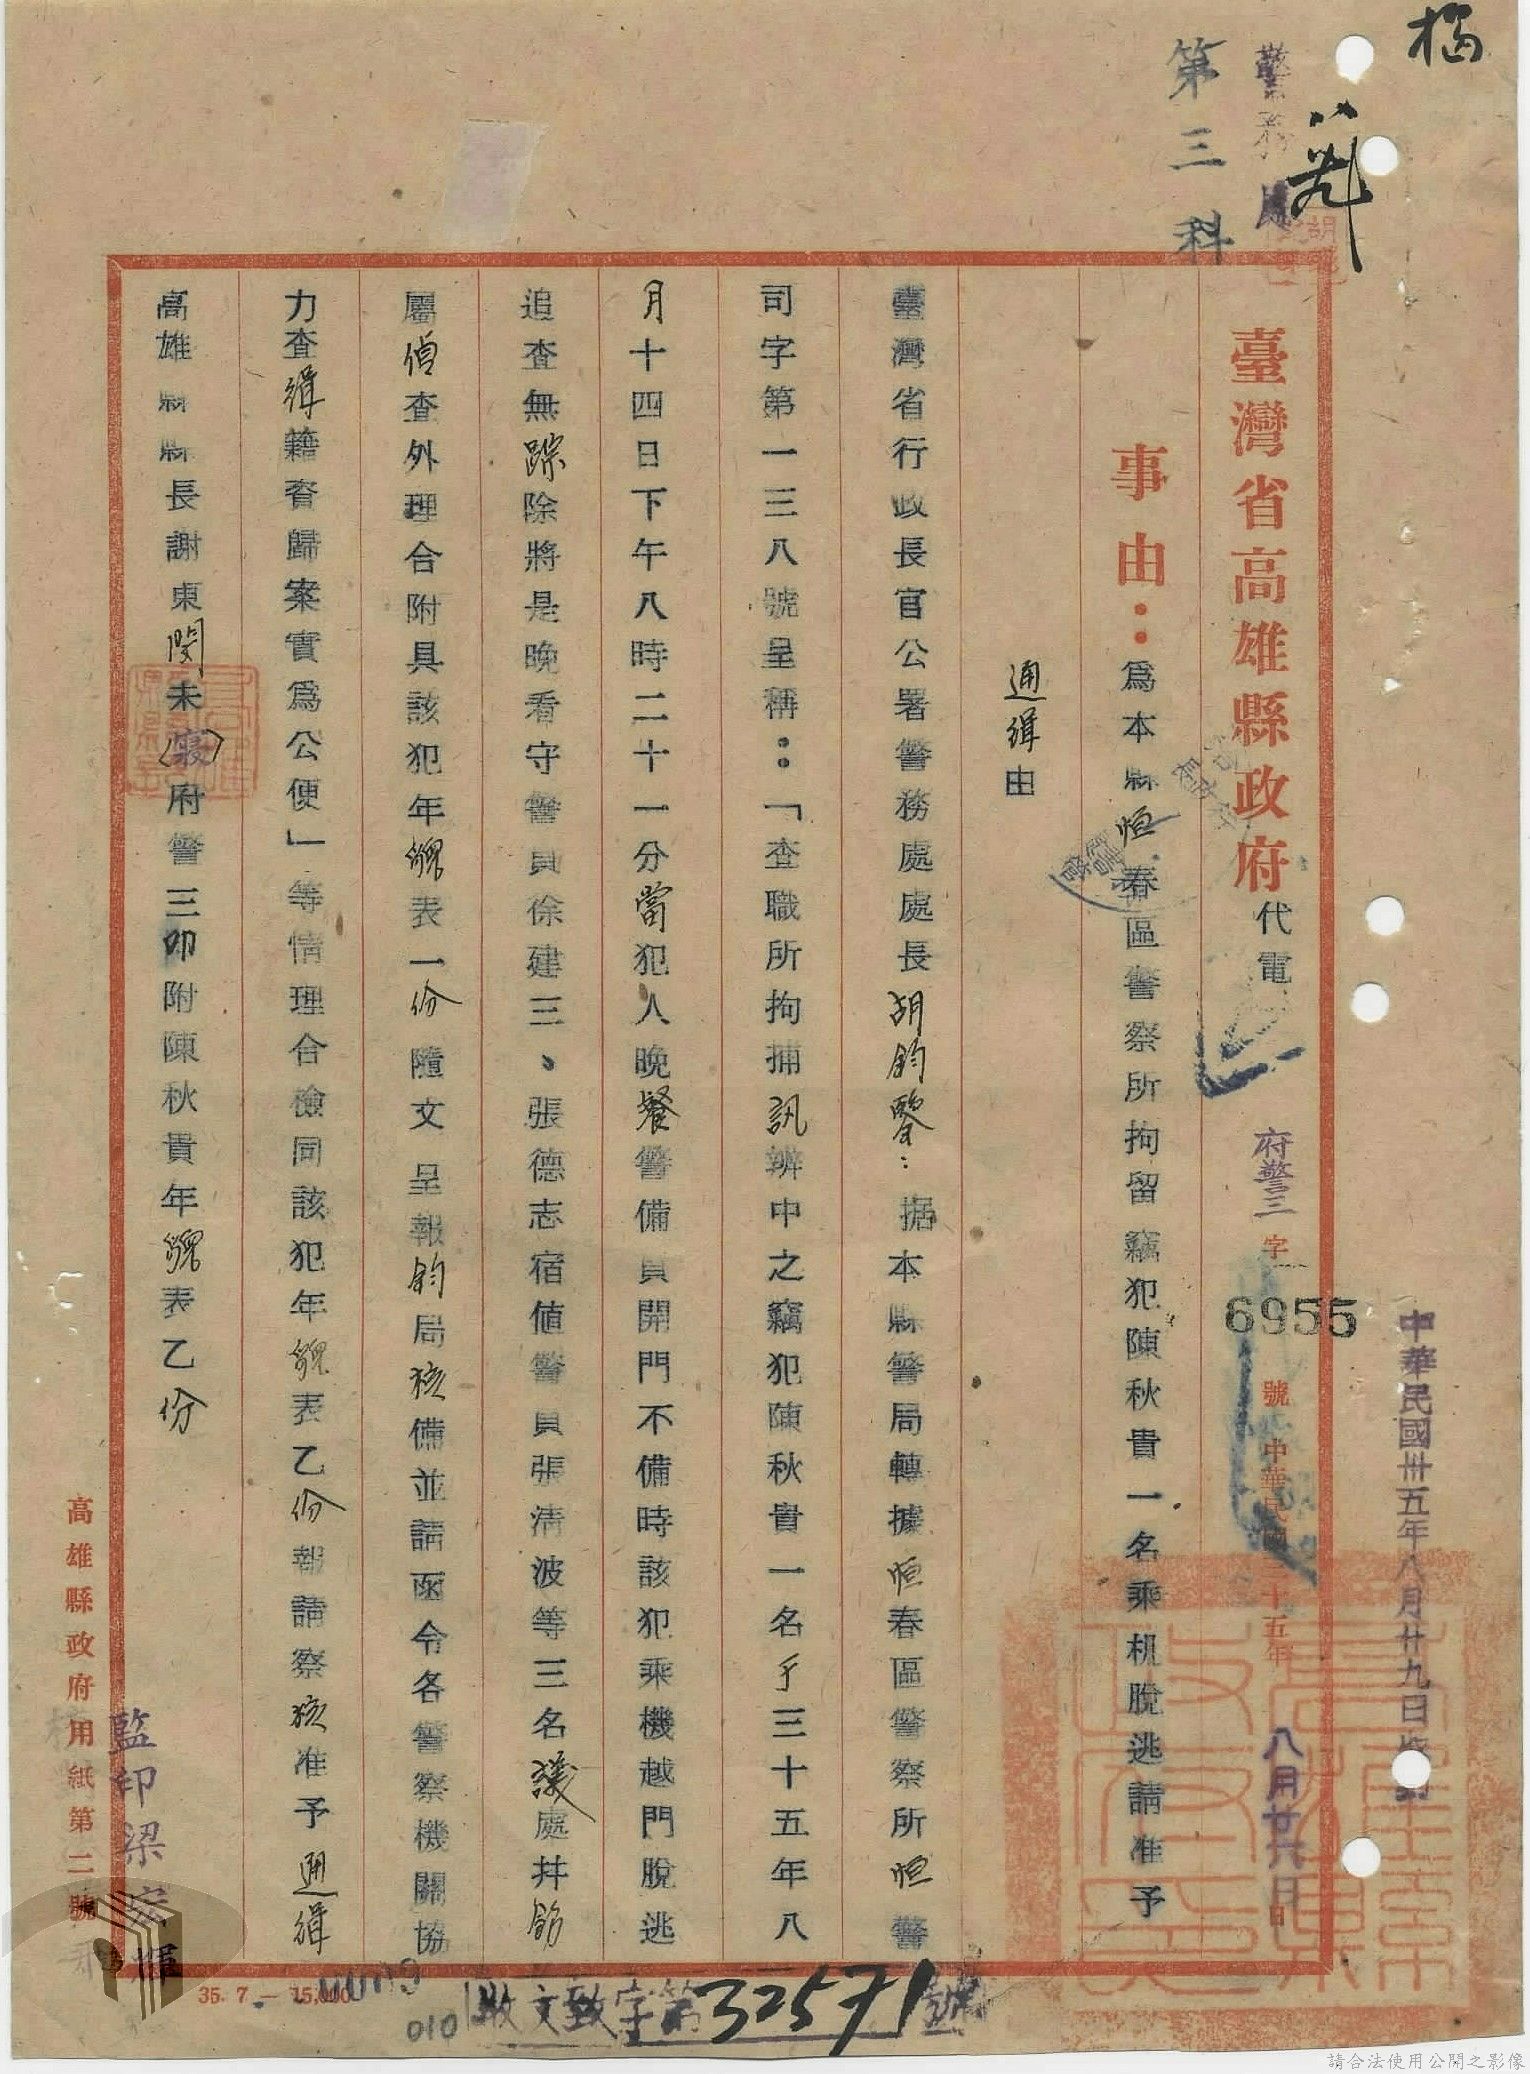 第三科
警務處
中華民國卅五年八月廿九日
臺灣省高雄縣政府代電
府警三字
6955
號
中華民國三十五年八月廿六日
事由：為本縣恒春區警察所拘留竊犯陳秋貴一名乘机脫逃請准予
通緝由
臺灣省行政長官公署警務處處長胡鈞鑒：据本縣警局轉據恒春區警察所恒警
司字第一三八號呈稱：「查職所拘捕訊辦中之竊犯陳秋貴一名于三十五年八
月十四日下午八時二十一分當犯人晚餐警備員開門不備時該犯乘機越門脫逃
追查無踪除將是晚看守警員徐建三、張德志宿値警員張清波等三名議處并飭
屬偵查外理合附具該犯年貌表一份隨文呈報鈞局核備並請函令各警察機關協
力查緝藉資歸案實為公便」等情理合檢同該犯年貌表乙份報請察核准予通緝
高雄縣縣長謝東閔未（寢）府警三卯附陳秋貴年貌表乙份
監印梁宏輝
高雄縣政府用紙第二號
35. 7 — 15,000
010
收文致字第32571號
請合法使用公開之影像